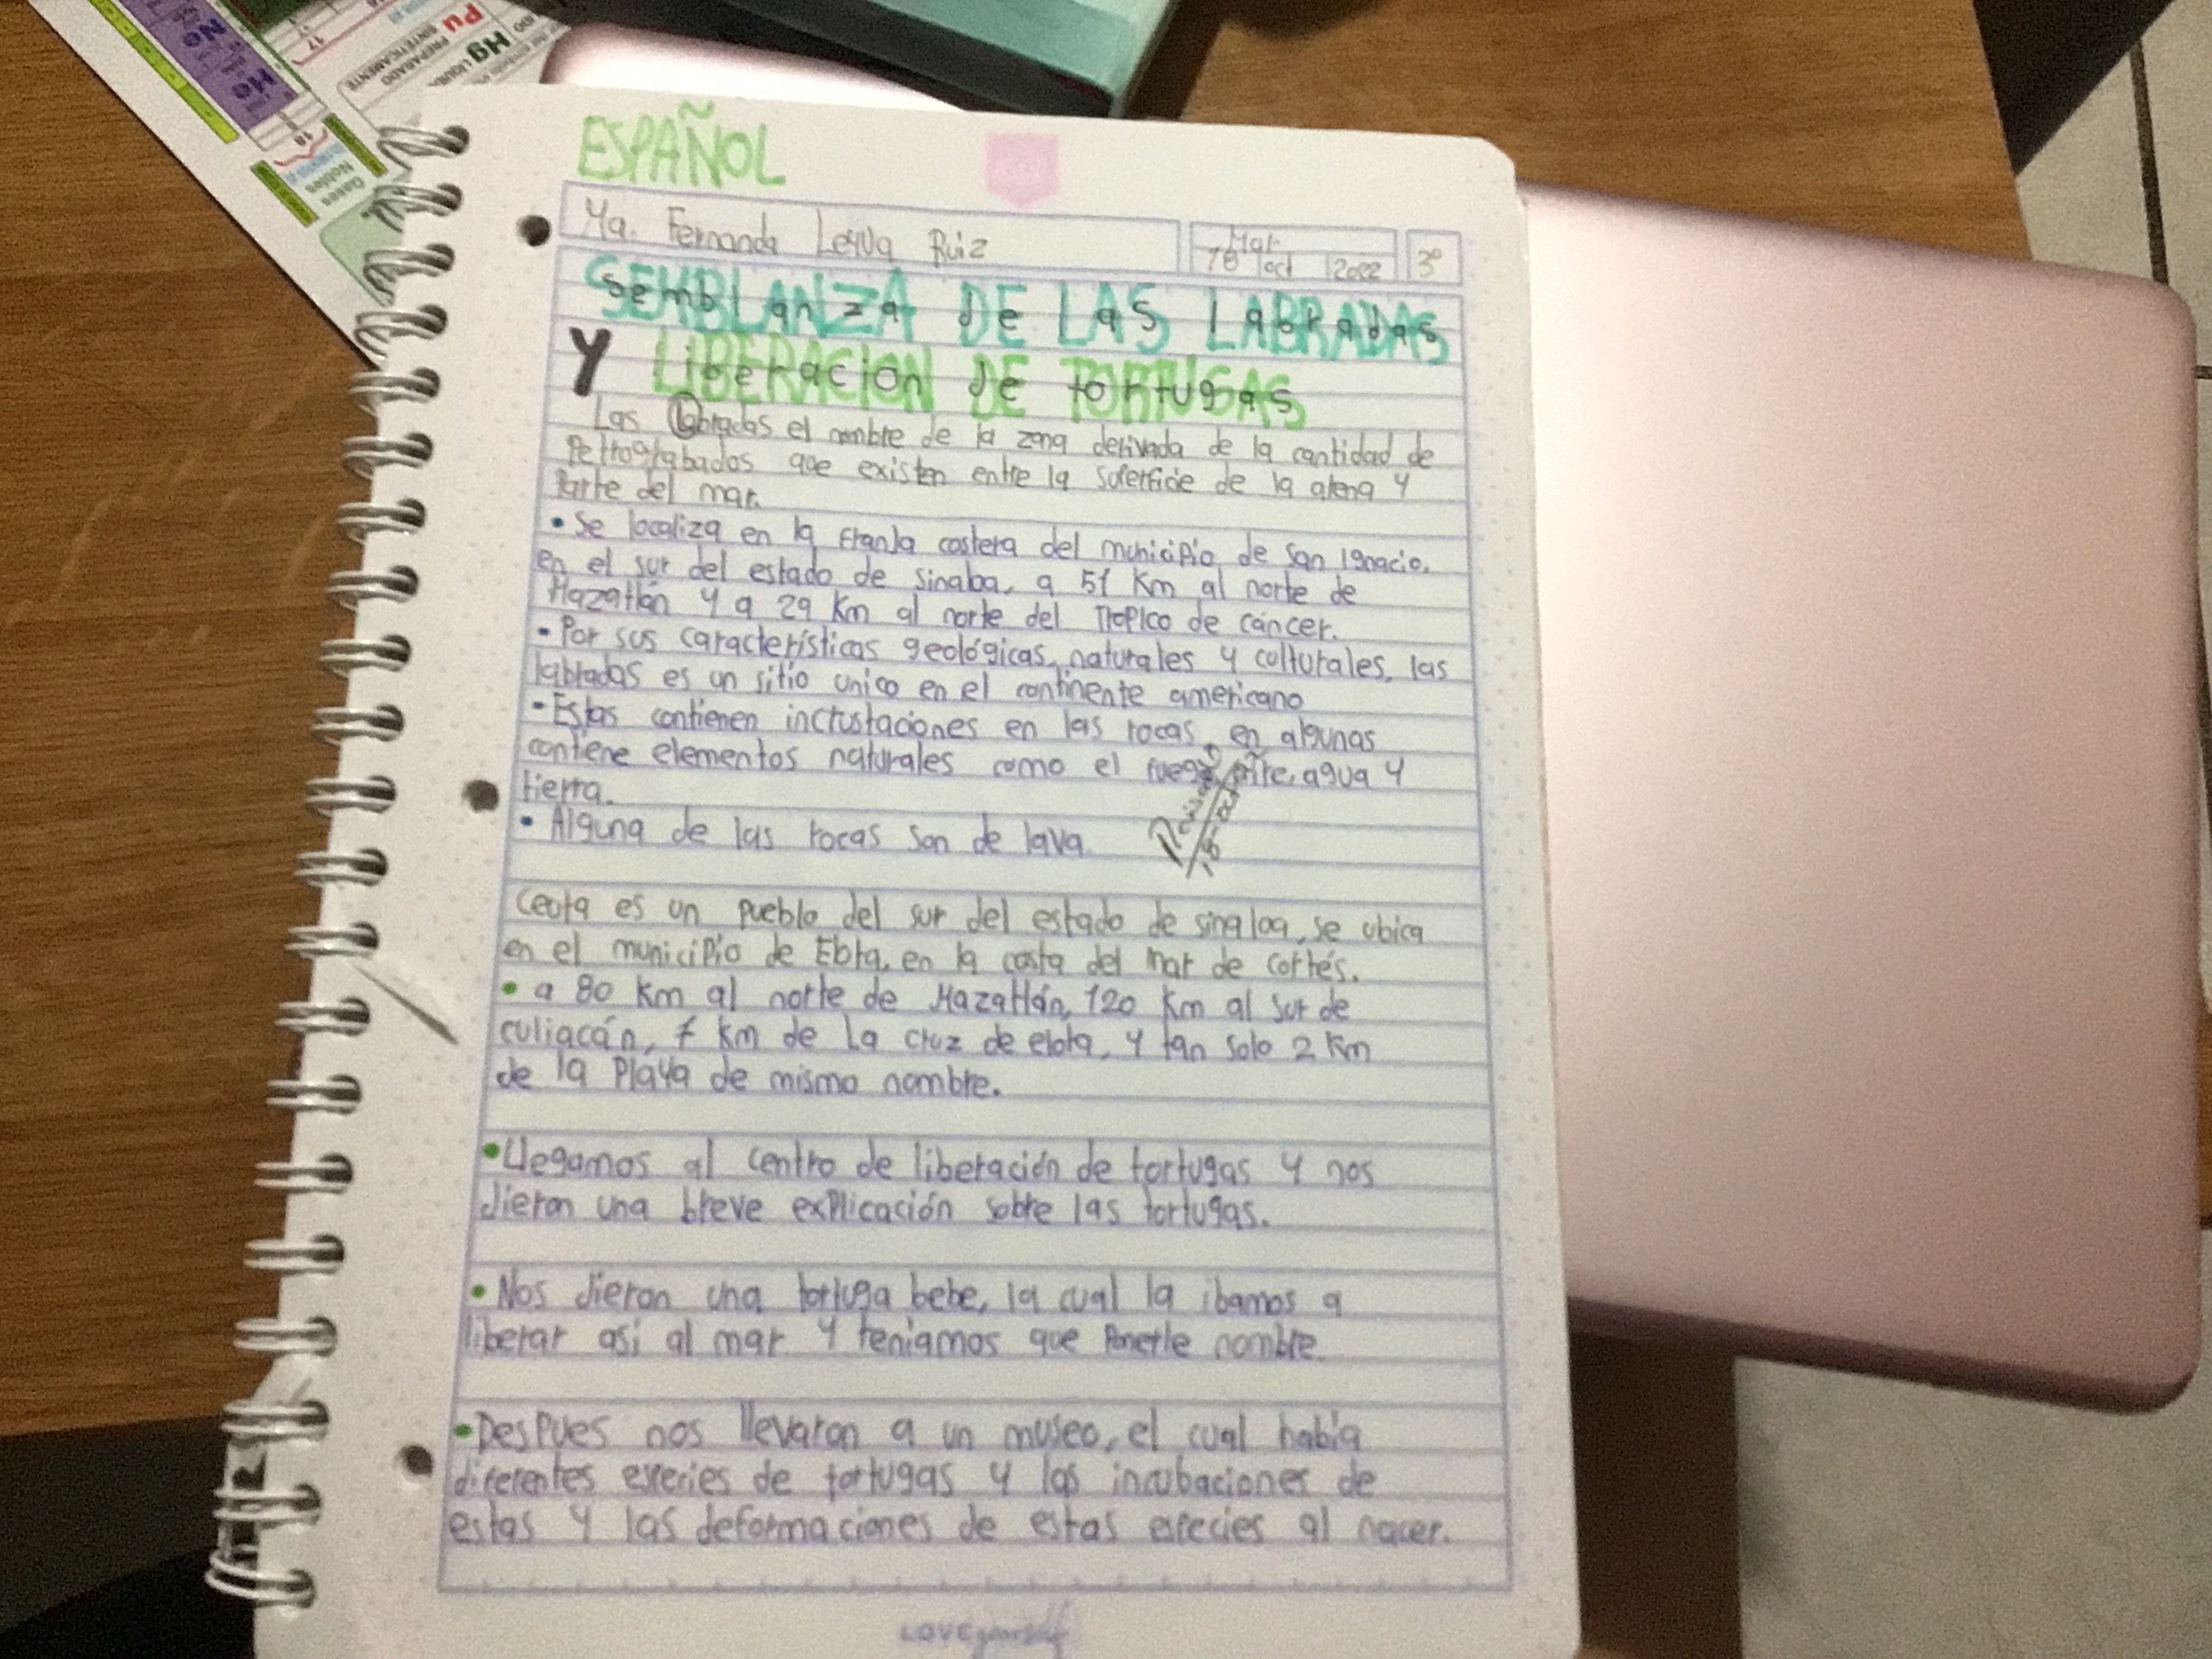 Pu
PREPARADO
SINTÉTICAMENTE
Hg
No
Gases
Nobles
ESPAÑOL
Ma. Fernanda Leyva Ruiz
Mar
18 oct 2022
3°
SEMBLANZA DE LAS LABRADAS
Y LIBERACION DE TORTUGAS
Las Labradas el nombre de la zona derivada de la cantidad de
Petrograbados que existen entre la superficie de la arena y
Parte del mar.
• Se localiza en la franja costera del municipio de San Ignacio.
en el sur del estado de sinaba, a 51 Km al norte de
Mazatlán y a 29 Km al norte del Tropico de cáncer.
• Por sus características geológicas, naturales y culturales, las
labradas es un sitio unico en el continente americano
• Estas contienen incrustaciones en las rocas, en algunas
contiene elementos naturales como el fuego, aire, agua y
tierra.
• Alguna de las rocas son de lava
18-oct
Ceuta es un pueblo del sur del estado de sinaloa, se ubica
en el municipio de Elota, en la costa del mar de cortés.
• a 80 Km al norte de Mazatlán, 120 Km al sur de
culiacán, 7 km de La cruz de elota, y tan solo 2 Km
de la Playa de mismo nombre.
• Llegamos al centro de liberación de tortugas y nos
dieron una breve explicación sobre las tortugas.
• Nos dieron una tortuga bebe, la cual la ibamos a
liberar asi al mar y teniamos que Ponerle nombre.
• Despues nos llevaron a un museo, el cual había
diferentes especies de tortugas y las incubaciones de
estas y las deformaciones de estas especies al nacer.
LOVE yourself